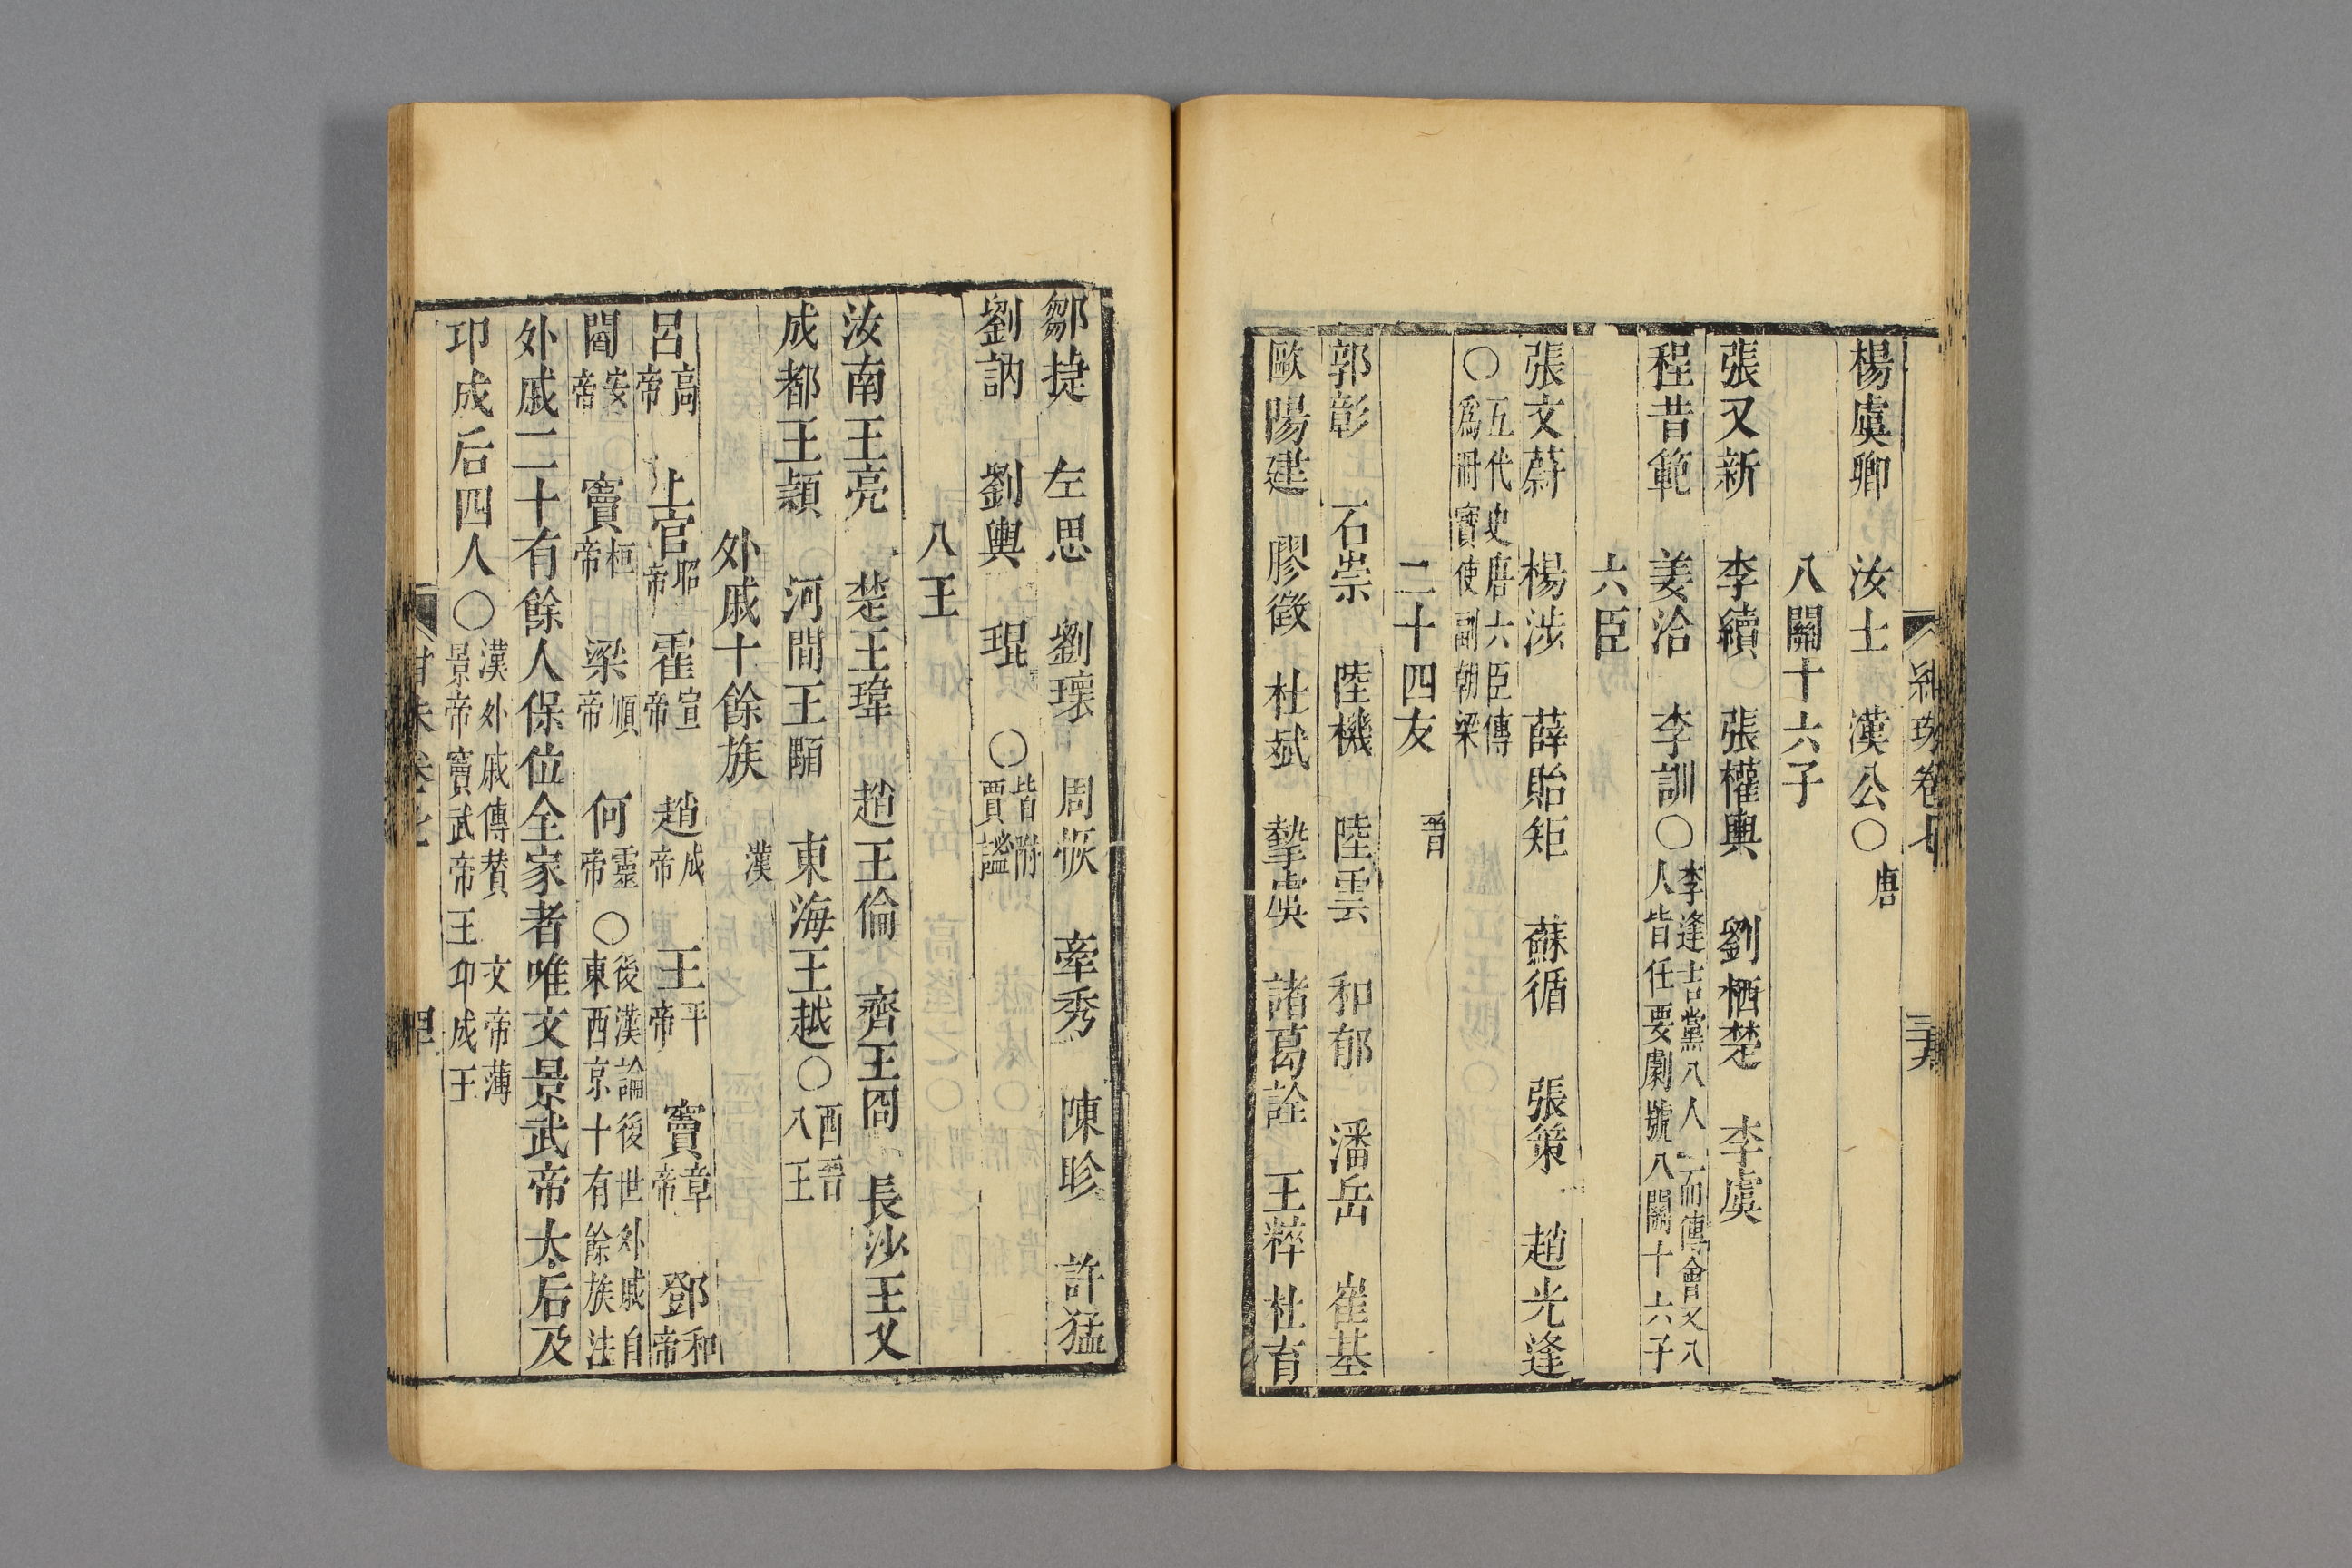 楊虞卿　汝士　漢公〇唐
八關十六子
張又新　李續　張權輿　劉栖楚　李虞
程昔範　姜洽　李訓〇李逢吉黨八人而傳會又八
人皆任要劇號八關十六子
六臣
張文蔚　楊涉　薛貽矩　蘇循　張策　趙光逢
〇五代史唐六臣傳
爲册寶使副朝梁
二十四友　晉
郭彰　石崇　陸機　陸雲　和郁　潘岳　崔基
歐陽建　膠徵　杜斌　摯虞　諸葛詮　王粹　杜育
鄒捷　左思　劉瓌　周恢　牽秀　陳眕　許猛
劉訥　劉輿　琨　〇皆附
賈謐
八王
汝南王亮　楚王瑋　趙王倫　齊王冏　長沙王乂
成都王穎　河間王顒　東海王越〇西晉
八王
外戚十餘族　漢
呂高帝　上官昭帝　霍宣帝　趙成帝　王平帝　竇章帝　鄧和帝
閻安帝　竇桓帝　梁順帝　何靈帝　〇後漢論後世外戚自
東西京十有餘族法
外戚二十有餘人保位全家者唯文景武帝太后及
邛成后四人〇漢外戚傳贊　文帝薄
景帝竇武帝王　邛成王